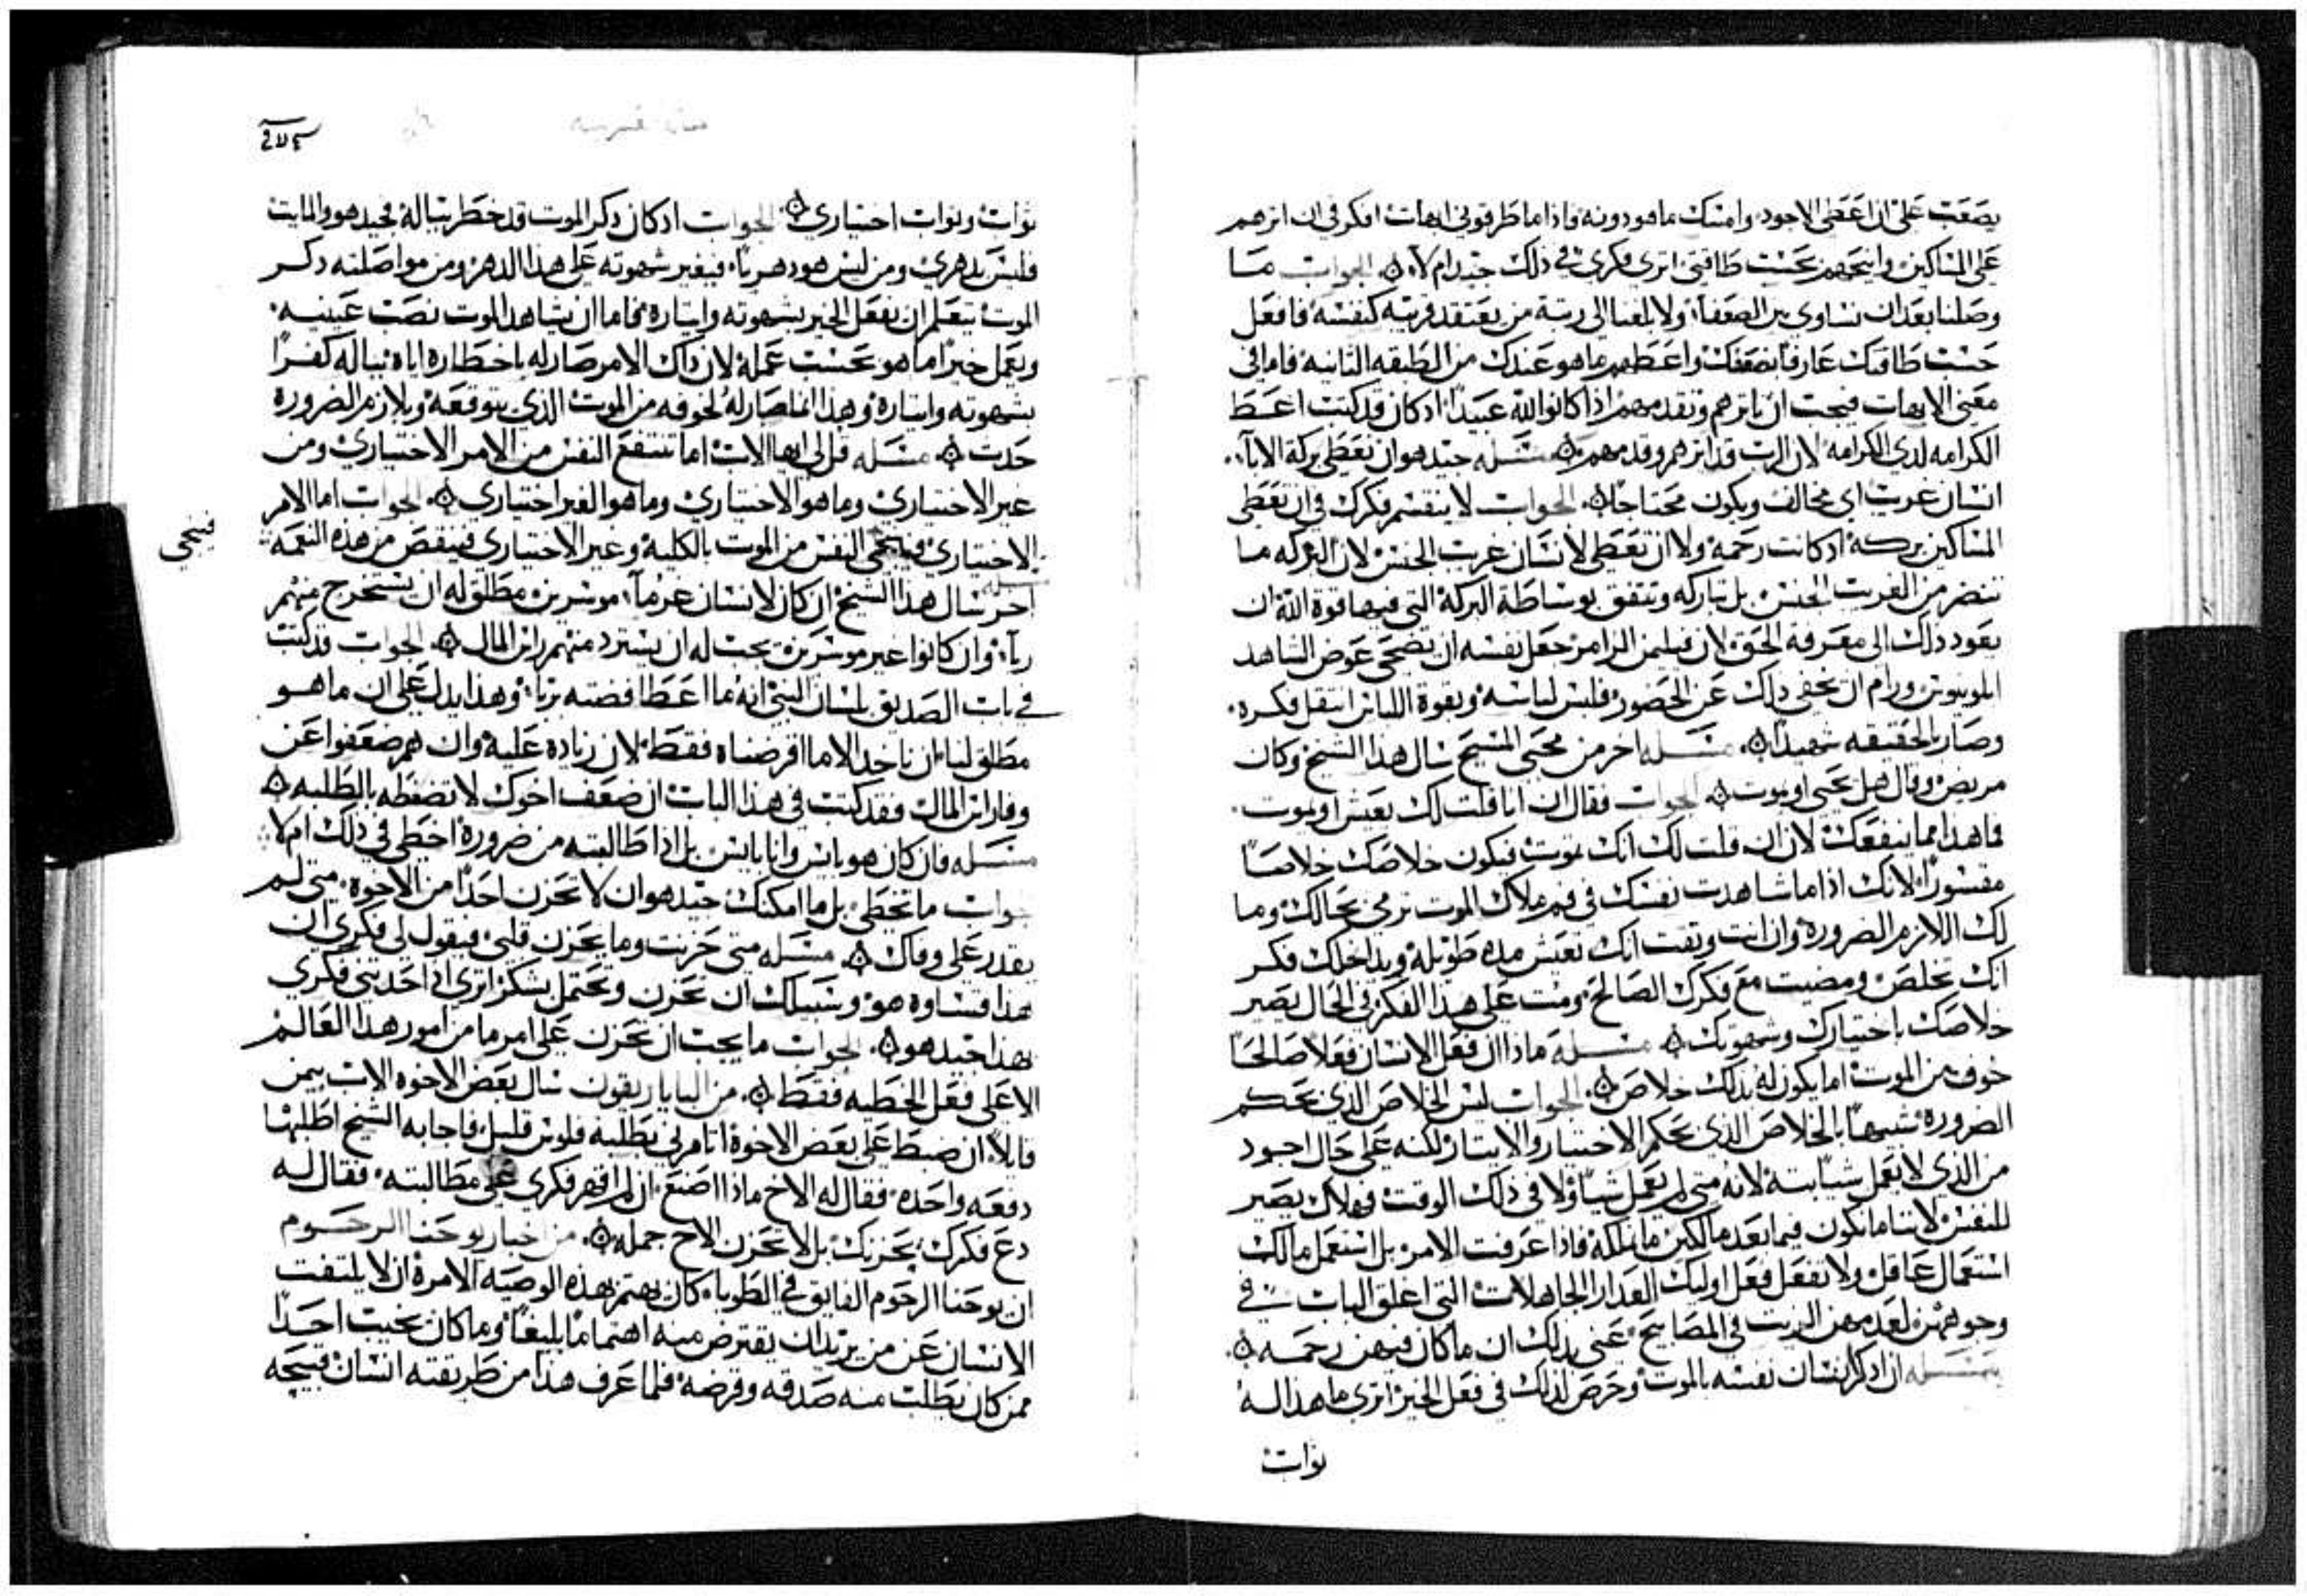 يصعب علىّ ان اعطى الاجود وامسك ماهو دونه فاذا ما طرقوني ابهات افكر في ان اثرهم
على المساكين وانيحهم بحسب طاقتي اترى فكرى في ذلك جيد ام لا. الجواب ما
وصلنا بعد ان نساوى بين الضعفا ولا بلغنا الى رتبة من يعتقد قريبه كنفسه فافعل
حسب طاقتك عارفا بضعفك واعطهم ماهو عندك من الطبقه الثانيه فاما في
معنى الابهات فيجب ان تاثرهم وتقدمهم اذا كانوا لله عبيدا اذ كان قد كتب اعط
الكرامه لدى الكرامه لان الرب قد اثرهم وقدمهم. مسله جيد هو ان نعطى بركة الابا.
انسان غريب اى مخالف ويكون محتاجا. الجواب لا ينقسم فكرك في ان تعطى
المساكين بركه اذ كانت رحمة ولا ان تعطى لانسان غريب الجنس لان البركه ما
تنضر من الغريب الجنس بل تباركه ويتفق بوساطة البركة التي فيها قوة الله ان
يعود ذلك الى معرفة الحق لان فيلمن الزامر جعل نفسه ان يضحى عوض الشاهد
ابلونيوس ورام ان يخفى ذلك عن الحضور فلبس لباسه وبقوة اللباس انتقل فكره.
وصار بالحقيقه شهيدا. مسله اخر من محبى المسيح سال هذا الشيخ وكان
مريض وقال هل يحيى او يموت. الجواب فقال ان انا قلت لك يعيش او يموت.
فما هذا مما ينفعك لان ان قلت لك انك تموت فيكون خلاصك خلاصا
مقسورا لانك اذا ما شاهدت نفسك في فم ملاك الموت ترمى بحالك وما
لك اللازم الضرورة وان انت وثقت انك تعيش مده طويلة ويداخلك فكر
انك تخلص ومضيت مع فكرك الصالح ومت على هذا الفكر في الحال يصير
خلاصك باختيارك وشهوتك. مسله ماذا ان فعل الانسان فعلا صالحا
خوف من الموت اما يكون له بذلك خلاص. الجواب ليس الخلاص الذى بحكم
الضرورة شبيها بالخلاص الذى بحكم الاختيار والايثار لكنه على حال اجود
من الذى لا يعمل شيا بتة لانه متى لم يعمل شيا ولا في ذلك الوقت فهلاك يصير
للنفس لاننا ما نكون فيما بعد مالكين ما نملكه فاذا عرفت الامر بل استعمل مالك
استعمال عاقل ولا تفعل فعل اوليك العدارا الجاهلات التي اغلق الباب في
وجوههن لعدمهن الزيت في المصابيح عنى بذلك ان ما كان فيهن رحمه.
مسله ان اذكر انسان نفسه بالموت وحرص لذلك في فعل الخير اترى ما هذا له
ثواب
ثواب وثواب اختيارى. الجواب اذ كان ذكر الموت قد خطر بباله فجيد هو والمايت
فليس بدهرى ومن ليس هو دهريا. فيغير شهوته على هذا الدهر ومن مواصلته ذكر
الموت يتعلم ان يفعل الخير بشهوته وايثاره فاما ان يشاهد الموت نصب عينيه.
ويعمل خيرا ما هو بحسب عمله لان ذاك الامر صار له باخطاره اياه بباله كفرا
بشهوته وايثاره وهذا انما صار له لخوفه من الموت الذى يتوقعه وبلازم الضرورة
حدث. مسله قل لى ايها الاب اما تنتفع النفس من الامر الاختيارى ومن
غير الاختيارى وما هو الاختيارى وما هو الغير اختيارى. الجواب اما الامر
الاختيارى فينجى النفس من الموت بالكلية وغير الاختيارى فينقص من هذه النعمه
فينجى
مسله
اخر سال هذا الشيخ ان كان لانسان غرما. موسرين مطلق له ان يستخرج منهم
ربا. وان كانوا غير موسرين يجب له ان يسترد منهم راس المال. الجواب قد كتب
في باب الصديق بلسان النبي انه ما اعطا فضته بربا. وهذا يدل على ان ما هو
مطلق لنا ان ناخد الا ما اقرضناه فقط لان زيادة عليه وان هم ضعفوا عن
وفا راس المال فقد كتب في هذا الباب ان ضعف اخوك لا تضغطه بالطلبه.
مسله فان كان هو بايس وانا بايس بل اذا طالبته من ضرورة اخطى في ذلك ام لا
جواب ما تخطى بل ما امكنك جيد هو ان لا تحزن احدا من الاخوة متى لم
يقدر على وفاك. مسله متى حزنت وما يحزن قلبى فيقول لى فكرى ان
هذا قساوه هو وسبيلك ان تحزن وتحتمل بشكر اترى اذا حدثني فكرى
بهذا جيد هو. الجواب ما يجب ان تحزن على امر ما من امور هذا العالم
الا على فعل الخطيه فقط. من البابا ريقون سال بعض الاخوه الاب بيمن
قايلا ان ضبط على بعض الاخوة اتامرنى بطلبة فلوس قليل فاجابه الشيخ اطلبها
دفعه واحده فقال له الاخ ماذا اصنع ان لم اقهر فكرى على مطالبته فقال له
دع فكرك يحزنك بل لا تحزن الاخ جمله. من اخبار يوحنا الرحوم
ان يوحنا الرحوم الفايق في الطوبا. كان يهتم بهذه الوصيه الامرة ان لا يلتفت
الانسان عن من يريد ان يقترض منه اهتماما بليغا وما كان يخيب احدا
ممن كان يطلب منه صدقه وقرضه فلما عرف هذا من طريقته انسان قبيحه